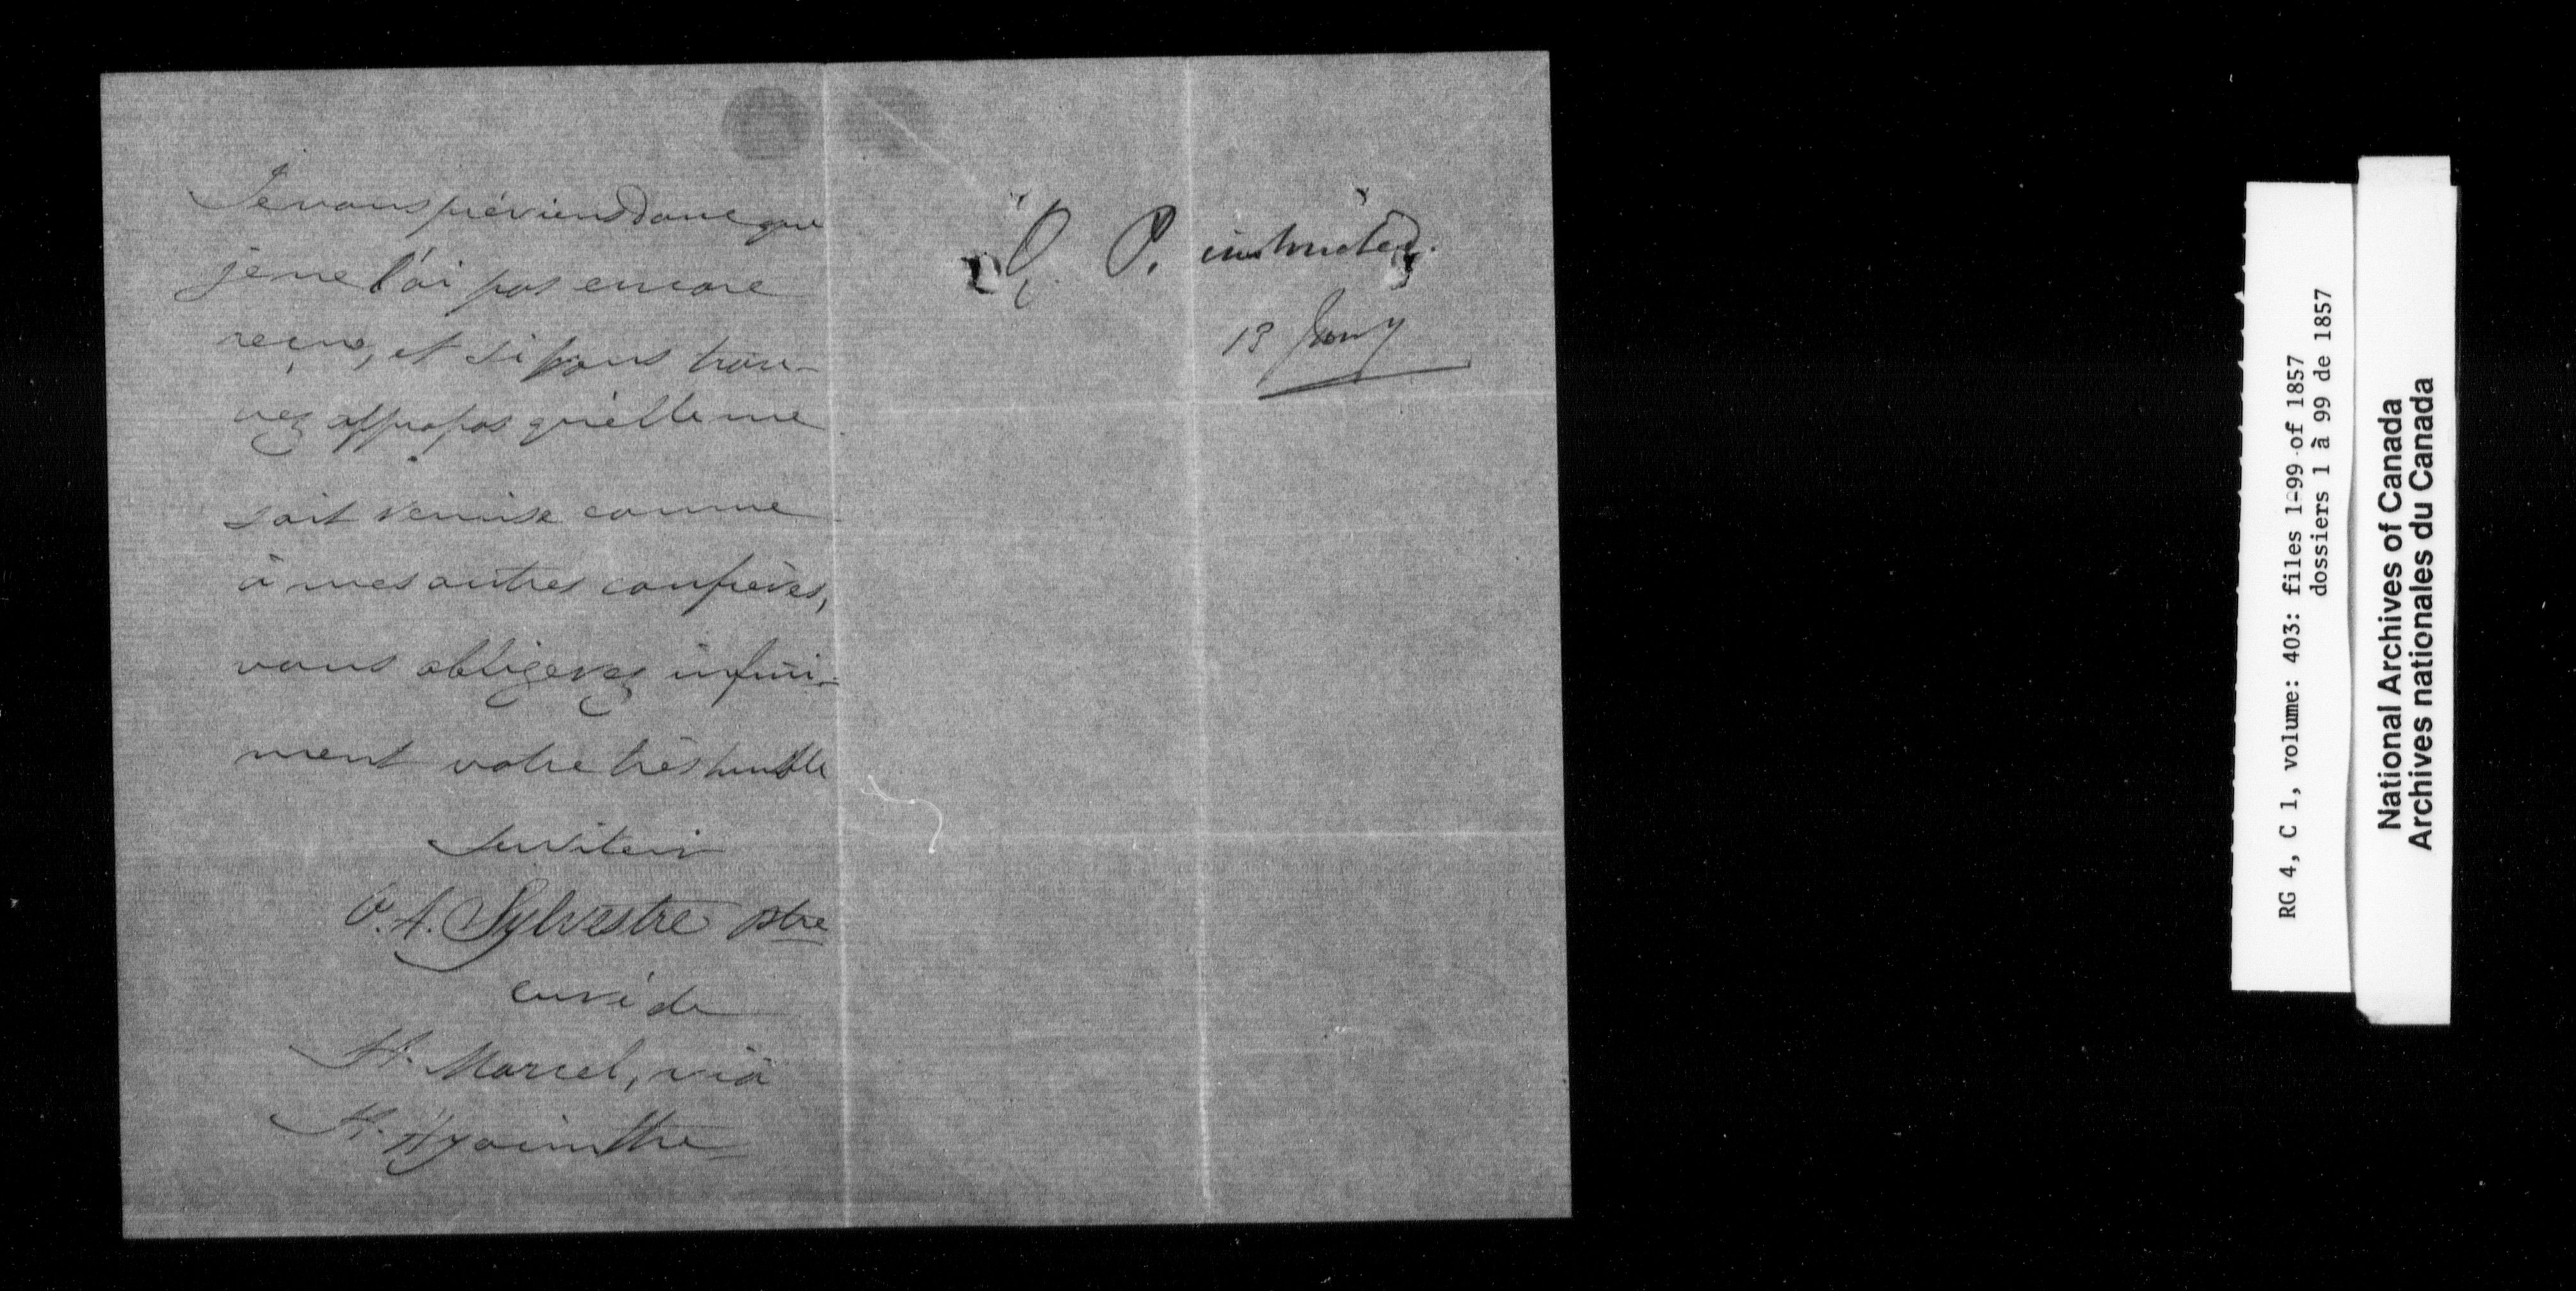 Je vous préviens donc que
je ne l'ai pas encore
reçue, et si vous trou-
vez appropos qu'elle me
soit remise comme
à mes autres confrères,
vous obligerez infini-
ment votre très humble
serviteur
O. A. Sylvestre ptre
curé de
St. Marcel, viâ
St. Hyacinthe
Q. P. instructed.
13 Jany
RG 4, C 1, volume: 403: files 1-99 of 1857
dossiers 1 à 99 de 1857
National Archives of Canada
Archives nationales du Canada